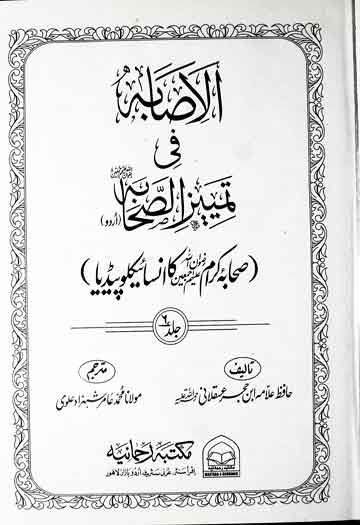 الاصابہ
فی
تمییز الصحابہ (اردو)
(صحابہ کرام رضوان اللہ علیہم اجمعین کا انسائیکلوپیڈیا)
جلد ۶
تالیف
حافظ علامہ ابن حجر عسقلانی رحمۃ اللہ علیہ
مترجم
مولانا محمد عامر شہزاد علوی
مکتبہ رحمانیہ
اقرأ سنٹر، غزنی سٹریٹ، اردو بازار، لاہور